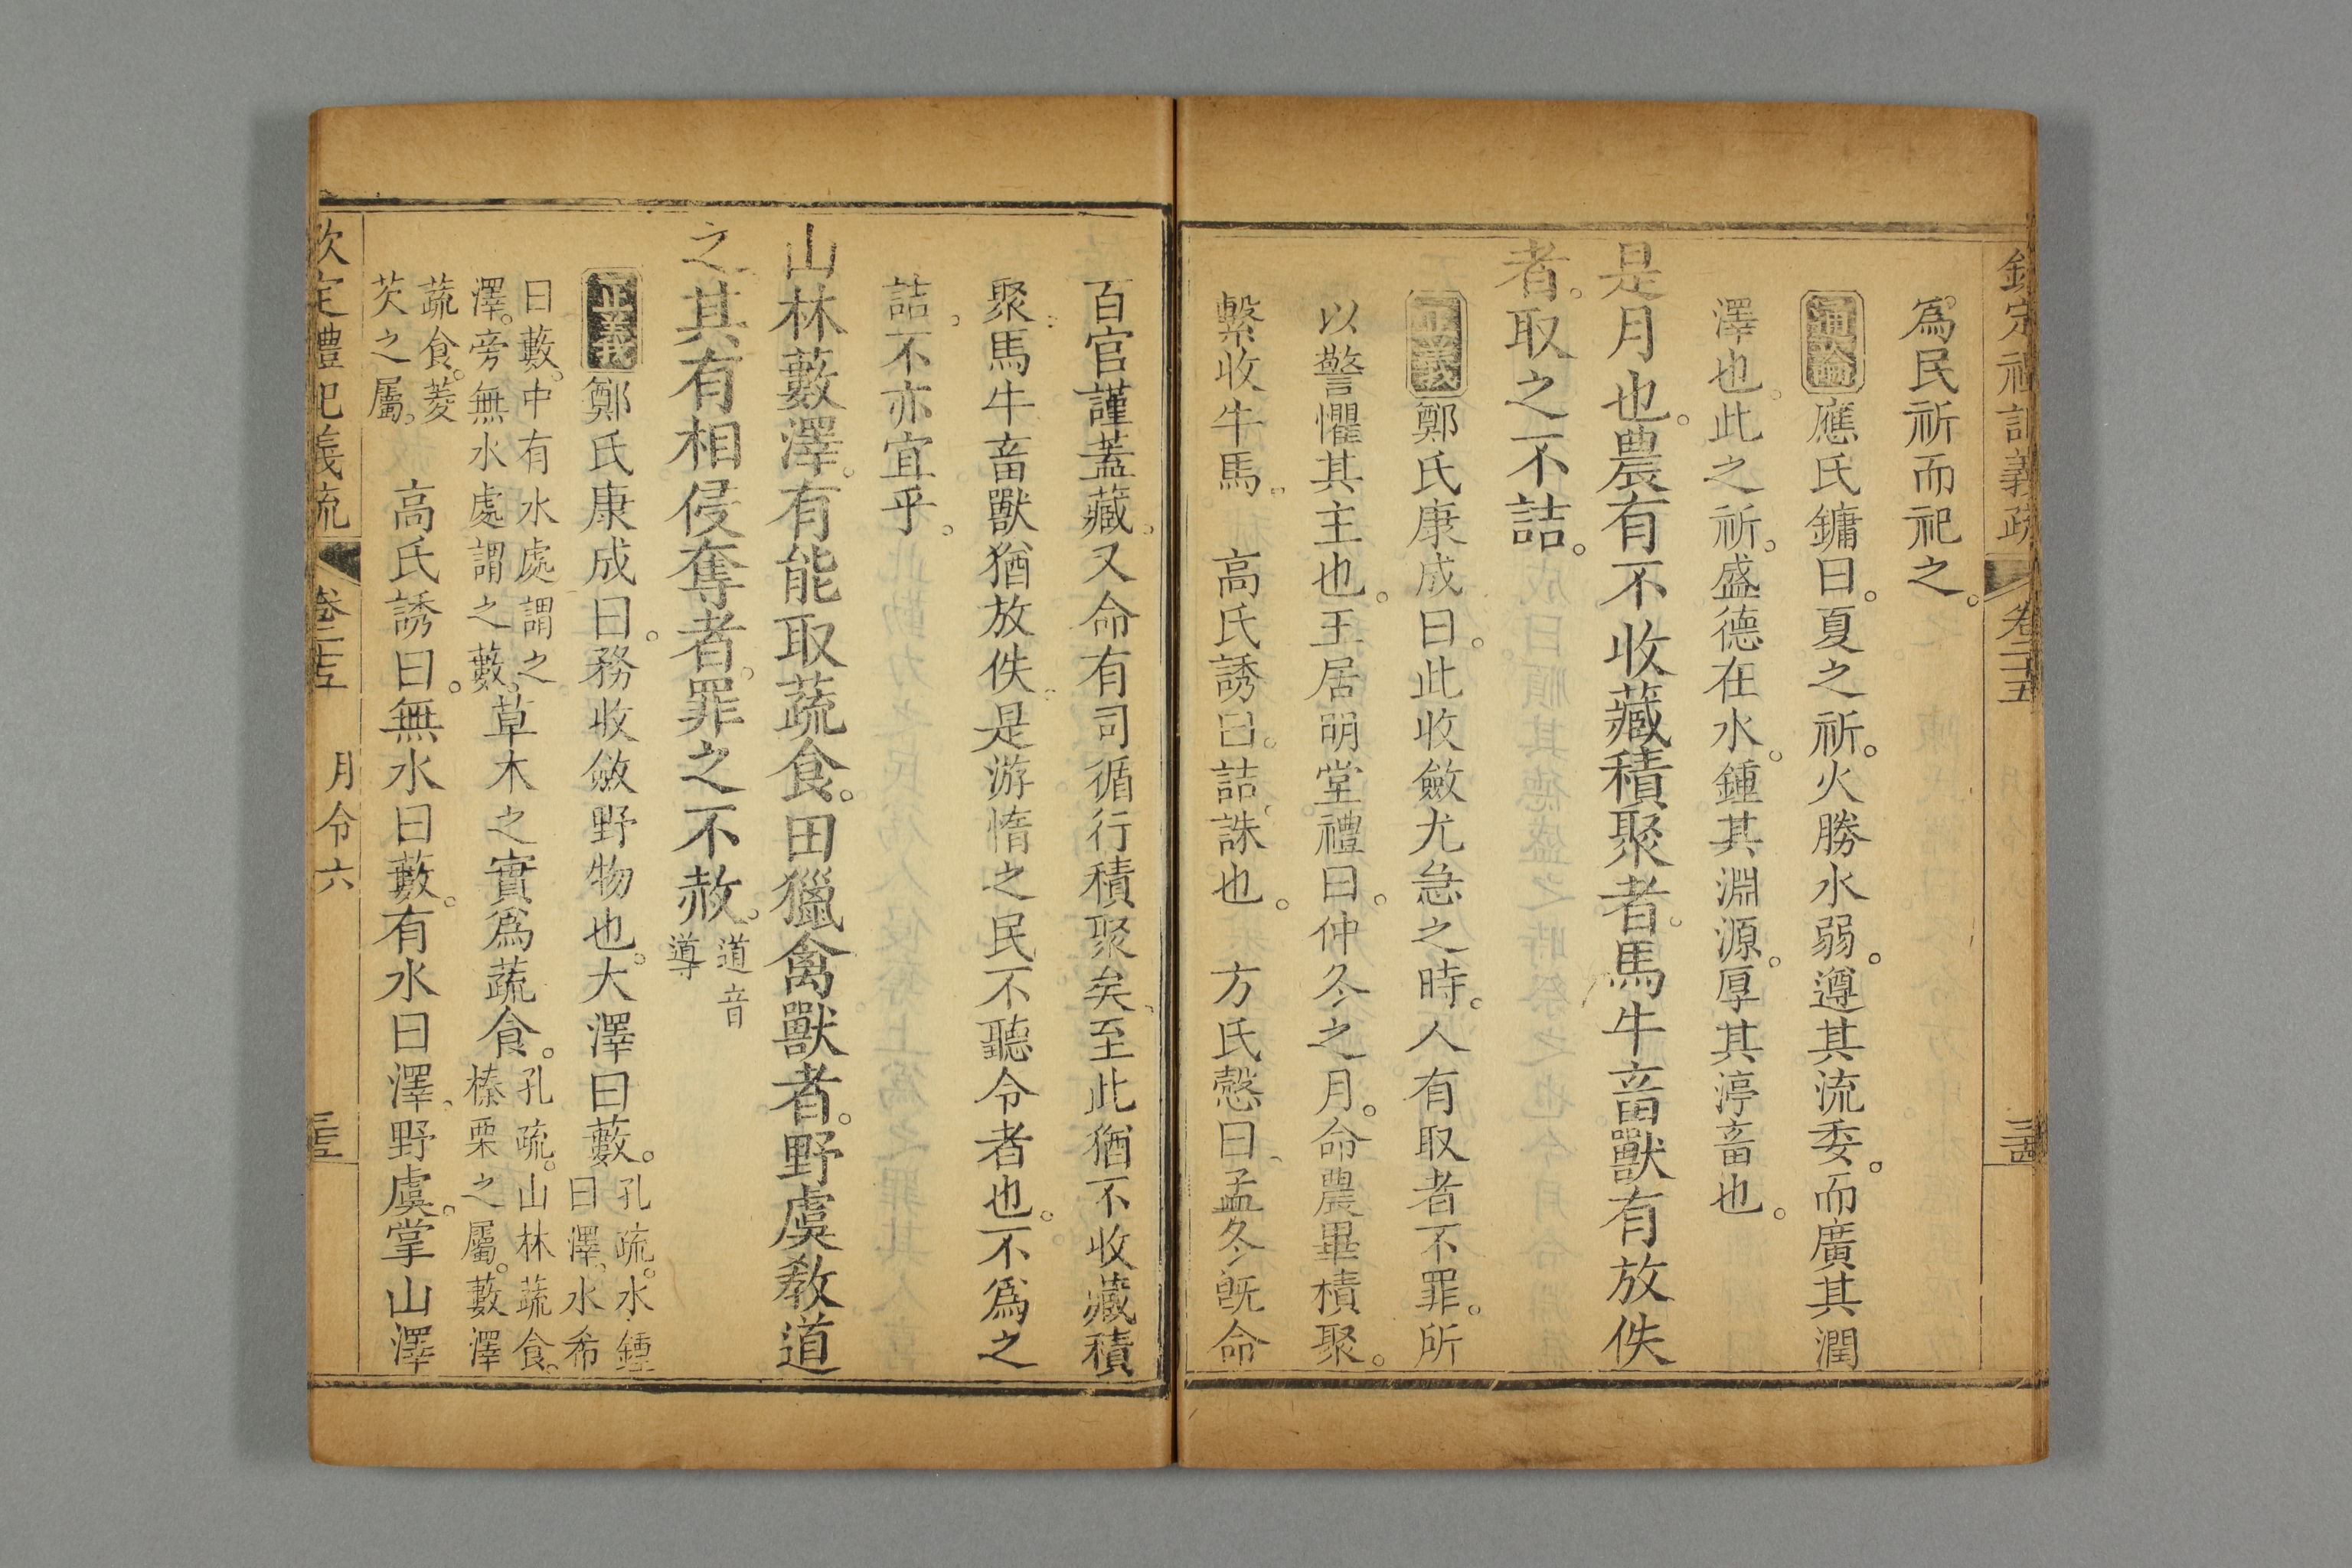 欽定禮記義疏 卷二十五 三四
爲民祈而祀之。
通論 應氏鏞曰。夏之祈。火勝水弱。遵其流委。而廣其潤
澤也。此之祈。盛德在水。鍾其淵源。厚其渟畜也。
是月也。農有不收藏積聚者。馬牛畜獸有放佚
者。取之不詰。
正義 鄭氏康成曰。此收斂尤急之時。人有取者不罪。所
以警懼其主也。王居明堂禮曰。仲冬之月。命農畢積聚。
繫收牛馬。 高氏誘曰。詰。誅也。 方氏慤曰。孟冬旣命
百官謹蓋藏。又命有司循行積聚矣。至此猶不收藏積
聚。馬牛畜獸猶放佚。是游惰之民不聽令者也。不爲之
詰。不亦宜乎。
山林藪澤。有能取蔬食。田獵禽獸者。野虞敎道
之。其有相侵奪者。罪之不赦。道音
導
正義 鄭氏康成曰。務收斂野物也。大澤曰藪。孔疏。水鍾
曰澤。水希
曰藪。中有水處謂之
澤。旁無水處謂之藪。草木之實爲蔬食。孔疏。山林蔬食。
榛栗之屬。藪澤
蔬食。菱
芡之屬。 高氏誘曰。無水曰藪。有水曰澤。野虞。掌山澤
欽定禮記義疏 卷二十五 月令六 三五